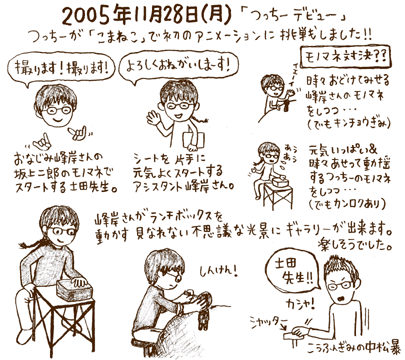 2005年11月28日(月)「つっちーデビュー」
つっちーが「こまねこ」で初のアニメーションに挑戦しました!!
撮ります!撮ります!
よろしくおねがいしまーす!
モノマネ対決??
時々おどけてみせる
峰岸さんのモノマネ
をしつつ・・・
(でもキンチョウぎみ)
おなじみ峰岸さんの
坂上二郎のモノマネで
スタートする土田先生。
シートを片手に
元気よくスタートする
アシスタント峰岸さん。
元気いっぱい&
時々あせって動揺
するつっちーのモノマネ
をしつつ・・・
(でもカンロクあり)
峰岸さんがランチボックスを
動かす見なれない不思議な光景にギャラリーが出来ます。
楽しそうでした。
しんけん!
土田
先生!!
カシャ!
シャッター→
こうふんぎみの中松暴